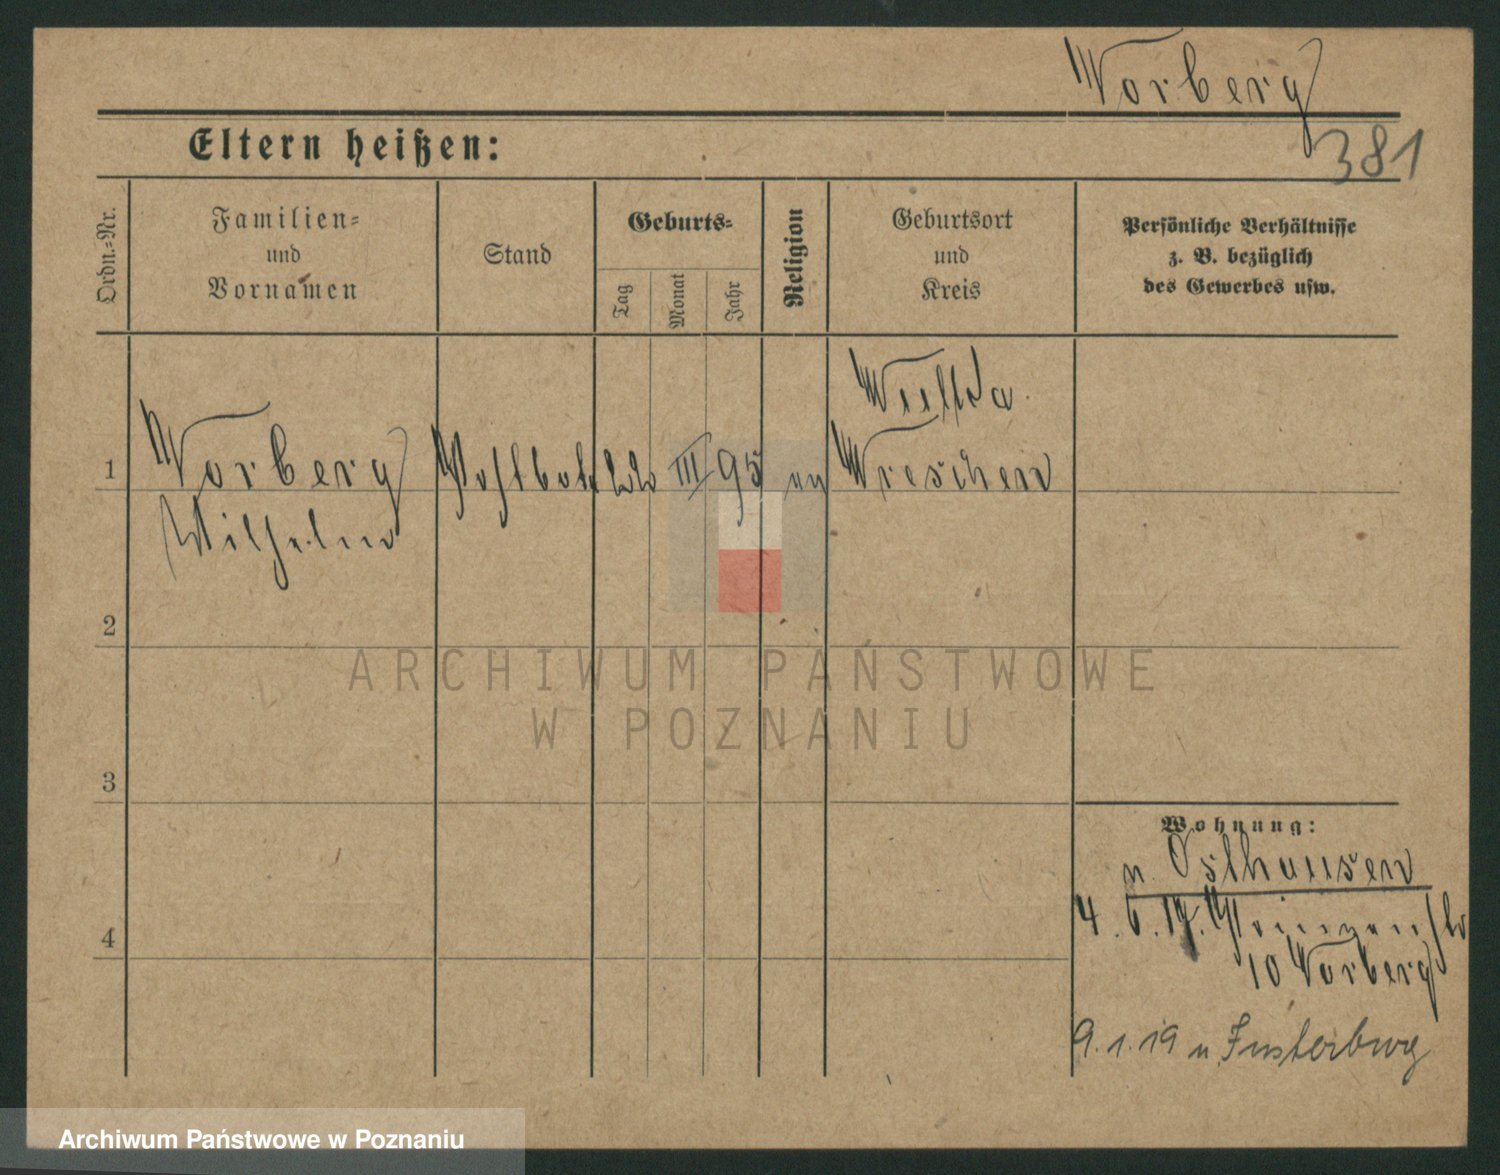 Vorberg
381
Eltern heißen:
Ordn.-Nr.
Familien-
und
Vornamen
Stand
Geburts-
Tag
Monat
Jahr
Religion
Geburtsort
und
Kreis
Persönliche Verhältnisse
z. B. bezüglich
des Gewerbes usw.
1
Vorberg
Wilhelm
III 95
Wreschen
2
3
4
Wohnung:
n. Osthausen
4. 6. 17.
10 Vorberg
9. 1. 19 n. Insterburg
ARCHIWUM PAŃSTWOWE
W POZNANIU
Archiwum Państwowe w Poznaniu